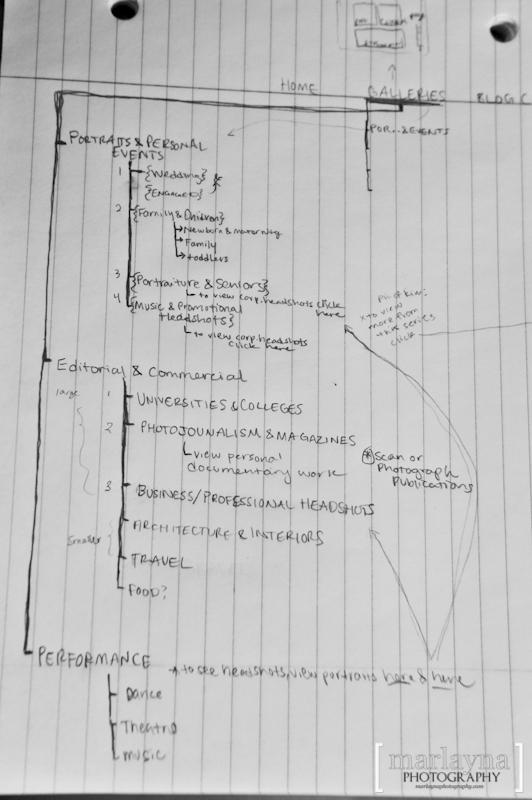 HOME
GALLERIES
BLOG
POR.. & EVENTS
PORTRAITS & PERSONAL
EVENTS
1 {Weddings}
{Engaged}
2 {Family & Children}
Newborn & maternity
Family
toddlers
3 {Portraiture & Seniors}
to view corp. headshots click
here
4 {Music & Promotional
Headshots}
to view corp headshots
click here
x to view
more from
this series
click
Editorial & Commercial
large
1 UNIVERSITIES & COLLEGES
2 PHOTOJOUNALISM & MAGAZINES
view personal
documentary work
* Scan or
Photograph
Publications
3 BUSINESS/PROFESSIONAL HEADSHOTS
Smaller
ARCHITECTURE & INTERIORS
TRAVEL
FOOD?
PERFORMANCE
* to see headshots, view portraits here & here
Dance
Theatre
music
[marlayna]
PHOTOGRAPHY
marlaynaphotography.com